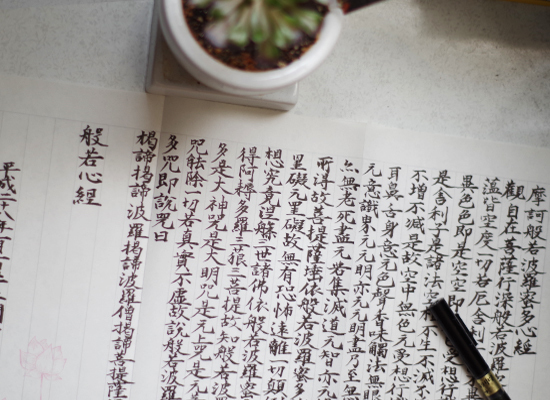 摩訶般若波羅蜜多心経
観自在菩薩行深般若波羅
蘊皆空度一切苦厄舎利
異色色即是空空即
是舎利子是諸法
不増不減是故空中無色无受想行
耳鼻舌身意无色聲香味觸法無眼
元意識界元元明亦元元明盡乃至無
無老死盡元苦集滅道元智亦元
所得故菩提薩埵依般若波羅蜜多
罣礙元罣礙故無有恐怖遠離一切顛
想究竟涅槃三世諸佛依般若波羅蜜
得阿耨多羅三藐三菩提故知般若波
多是大神呪是大明呪是元上呪是元
呪能除一切苦真實不虚故説般若波羅
多呪即説呪曰
揭諦揭諦波羅揭諦波羅僧揭諦菩提薩
般若心経
平成二八年